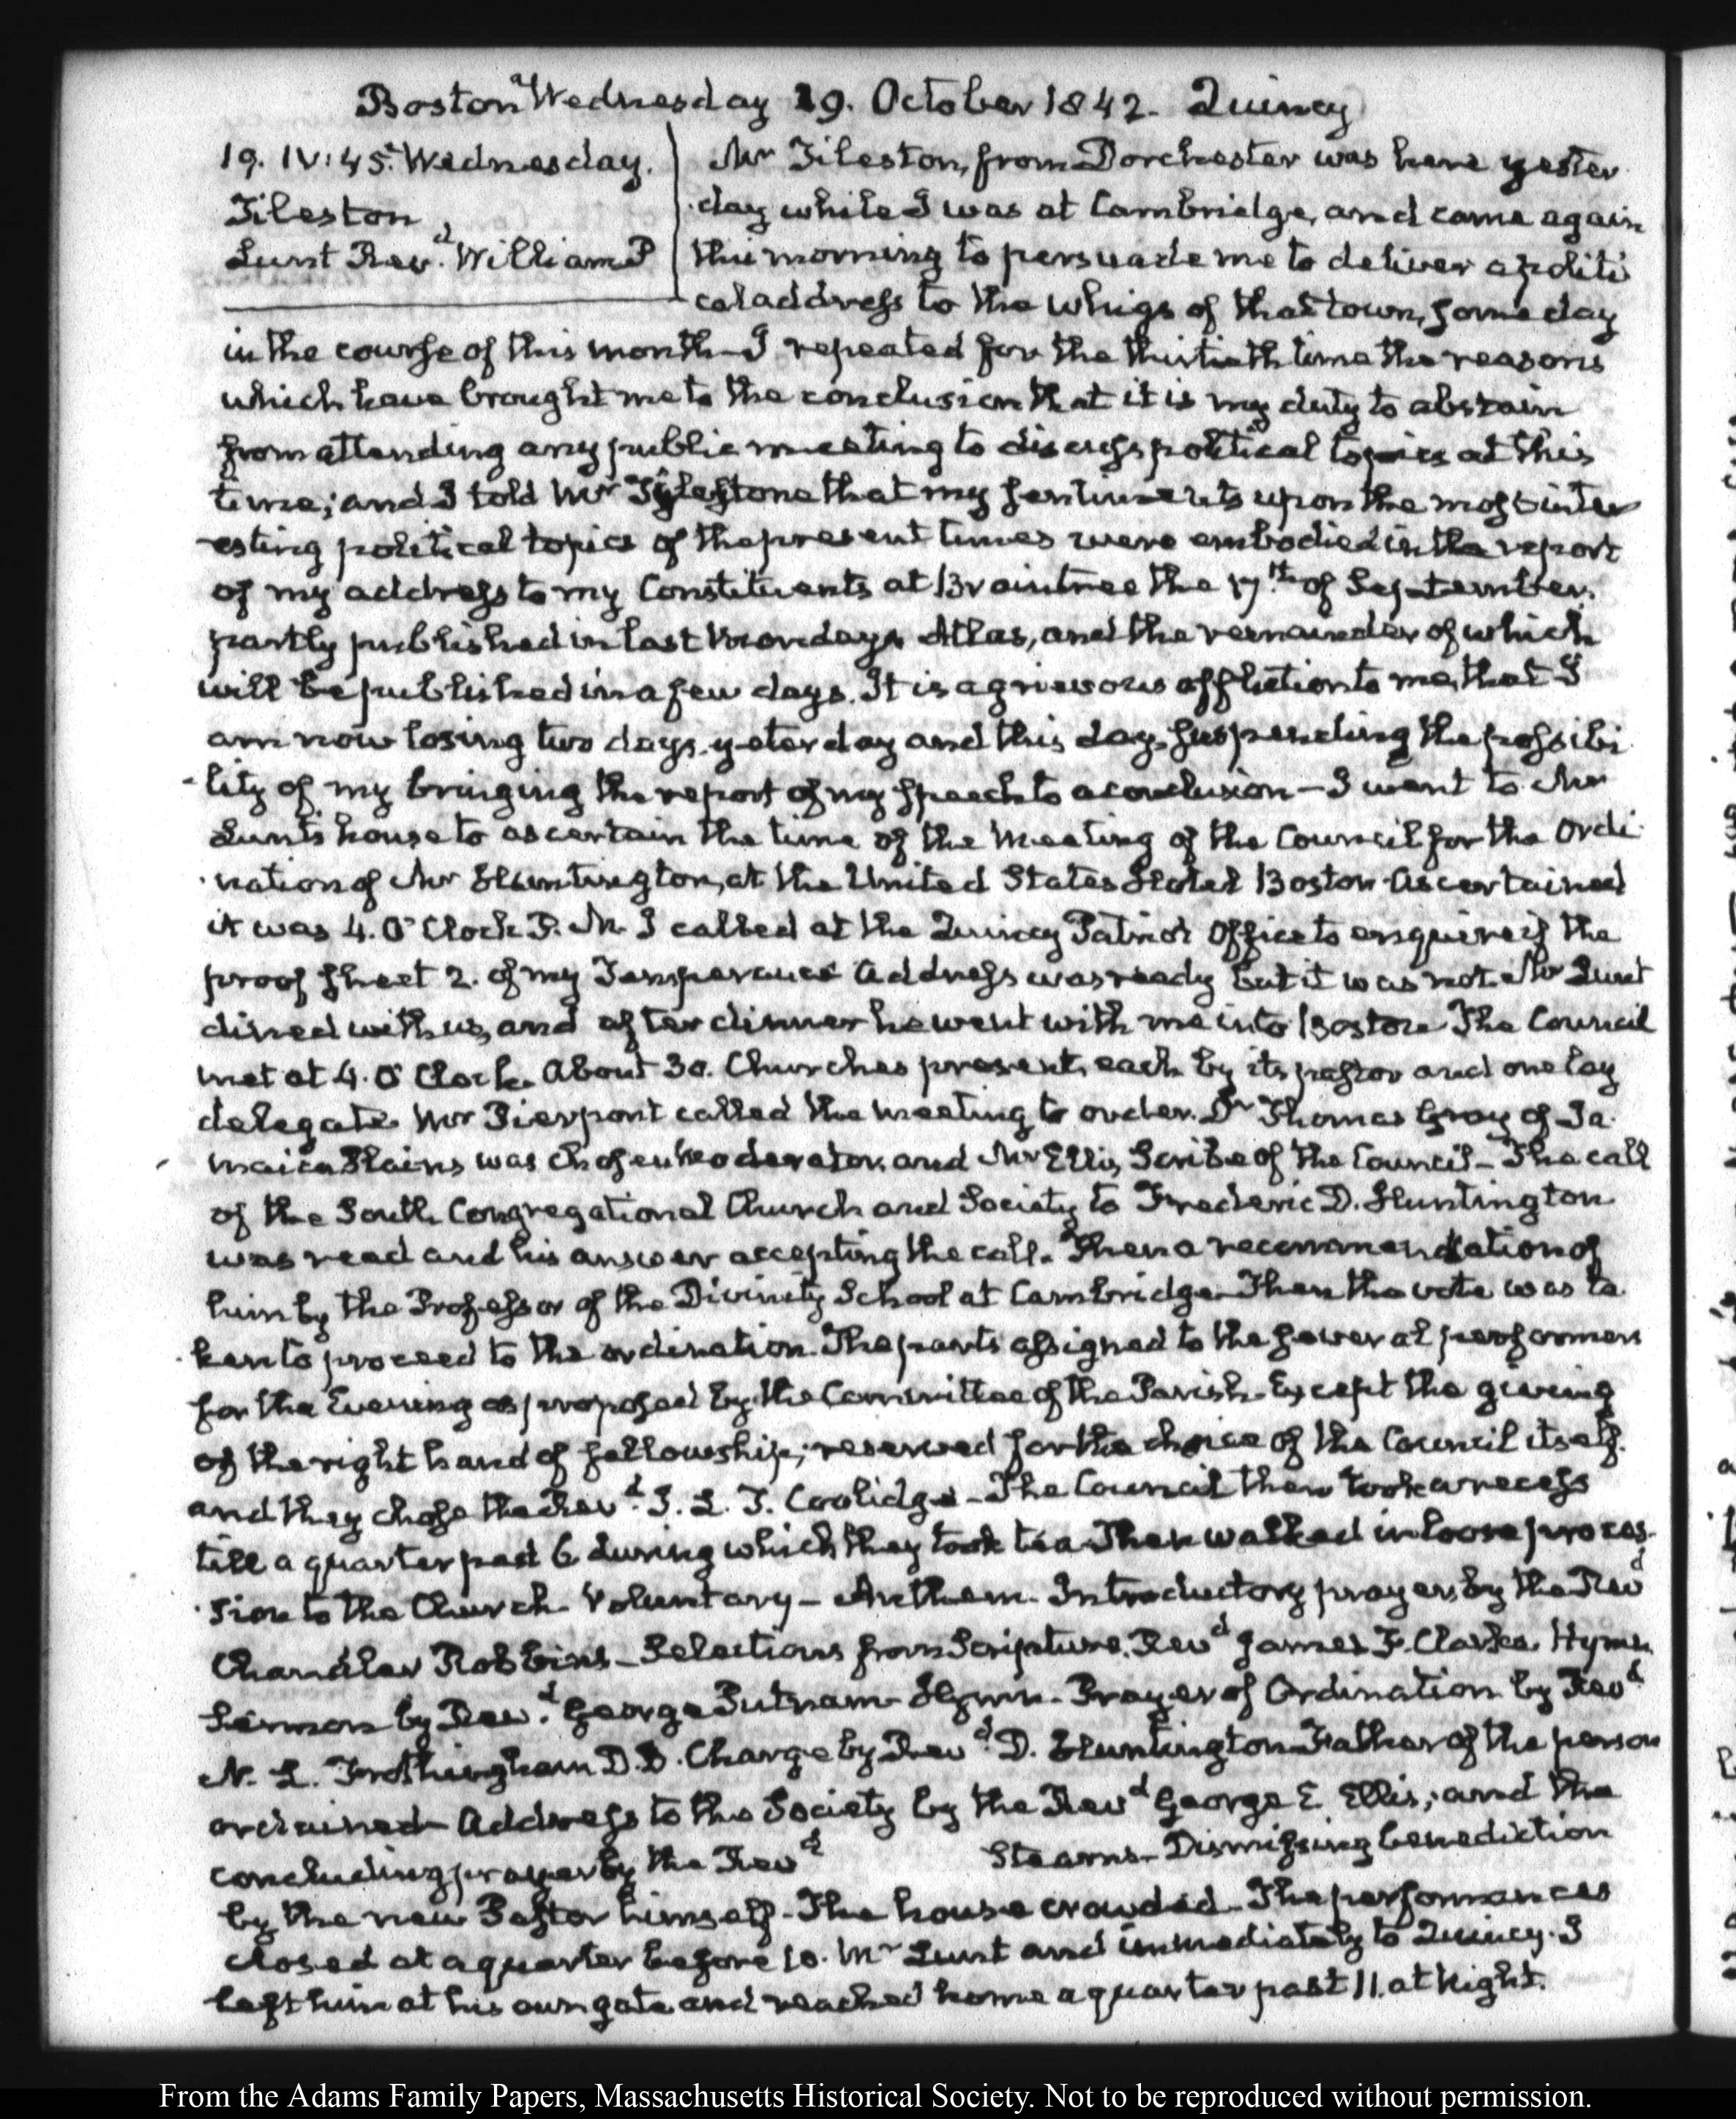 Boston & Wednesday 19. October 1842. Quincy
19. IV:45. Wednesday.
Tileston
Lunt Revd. William P
Mr Tileston, from Dorchester was here yester
day while I was at Cambridge, and came again
this morning to persuade me to deliver a politi
cal address to the Whigs of that town, some day
in the course of this month— I repeated for the thirtieth time the reasons
which have brought me to the conclusion that it is my duty to abstain
from attending any public meeting to discuss political topics at this
time; and I told Mr Tylestone that my sentiments upon the most inter
esting political topics of the present times were embodied in the report
of my address to my Constituents at Braintree the 17th. of September.
partly published in last Mondays Atlas, and the remainder of which
will be published in a few days. It is a grievous affliction to me, that I
am now losing two days, yesterday and this day, suspending the possibi
lity of my bringing the report of my speech to a conclusion— I went to Mr
Lunt's house to ascertain the time of the meeting of the Council for the Ordi
nation of Mr Huntington, at the United States Hotel Boston. Ascertained
it was 4. O'Clock P.M. I called at the Quincy Patriot Office to enquire if the
proof sheet 2. of my Temperance Address was ready but it was not. Mr Lunt
dined with us, and after dinner he went with me into Boston. The Council
met at 4. O'Clock. About 30. Churches present, each by its pastor and one lay
delegate. Mr Pierpont called the meeting to order. Dr Thomas Gray of Ja
maica Plains was chosen Moderator, and Mr Ellis, Scribe of the Council— The call
of the South Congregational Church and Society to Frederic D. Huntington
was read and his answer accepting the call. Then a recommendation of
him by the Professor of the Divinity School at Cambridge— Then the vote was ta
ken to proceed to the ordination. The parts assigned to the several performers
for the Evening as proposed by the Committee of the Parish— Except the giving
of the right hand of fellowship; reserved for the choice of the Council itself.
and they chose the Revd. J. I. T. Coolidge— The Council then took a recess
till a quarter past 6 during which they took tea— Then walked in loose proces
sion to the Church— Voluntary— Anthem— Introductory prayer, by the Revd
Chandler Robbins— Selections from Scripture. Revd James F. Clarke. Hymn
Sermon by Revd. George Putnam— Hymn— Prayer of Ordination by Revd
N. L. Frothingham D.D. Charge by Revd. D. Huntington Father of the person
ordained— Address to the Society by the Revd George E Ellis; and the
concluding prayer by the Revd Stearns— Dismissing benediction
by the new Pastor himself— The house crowded— The performances
closed at a quarter before 10. Mr Lunt and immediately to Quincy. I
left him at his own gate and reached home a quarter past 11. at Night.
From the Adams Family Papers, Massachusetts Historical Society. Not to be reproduced without permission.